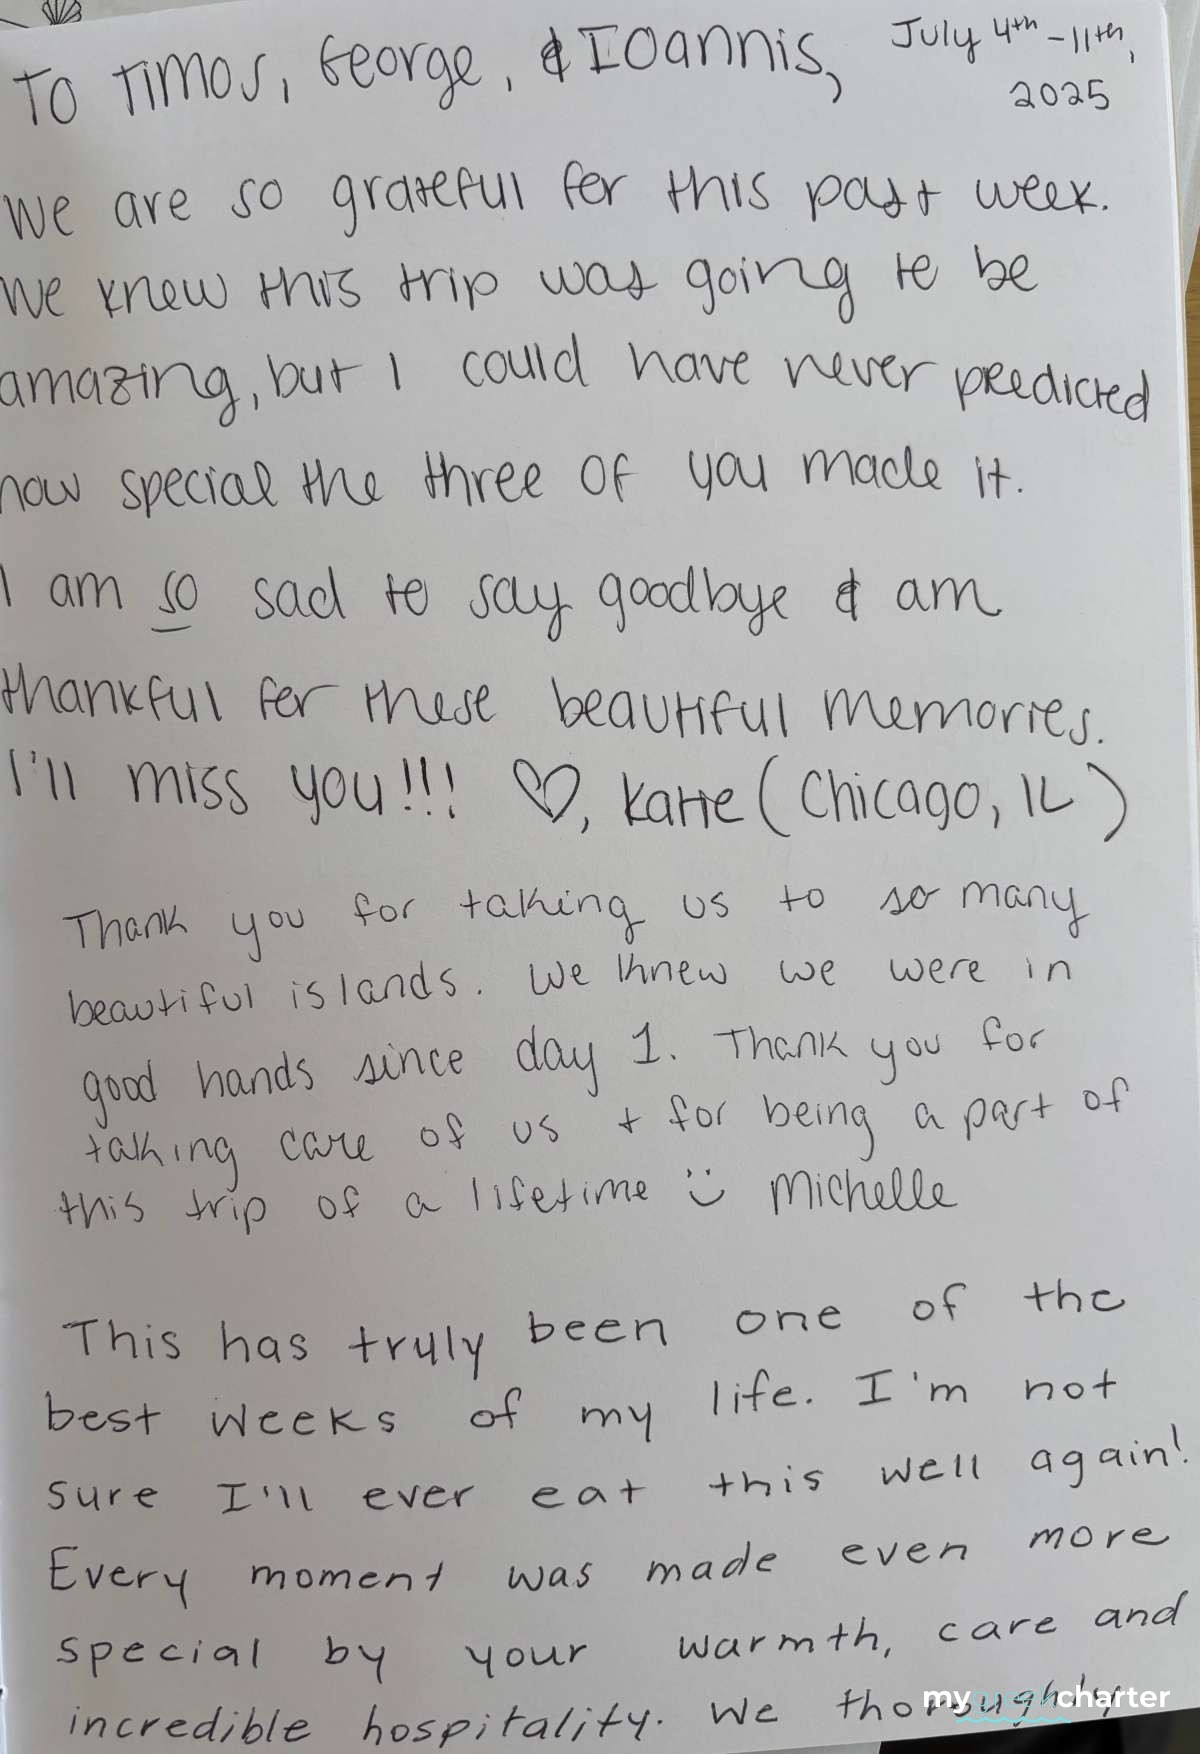 To Timos, George, & Ioannis, July 4th - 11th,
2025
We are so grateful for this past week.
We knew this trip was going to be
amazing, but I could have never predicted
how special the three of you made it.
I am so sad to say goodbye & am
thankful for these beautiful memories.
I'll miss you!!! ♡, Katie (Chicago, IL)
Thank you for taking us to so many
beautiful islands. We knew we were in
good hands since day 1. Thank you for
taking care of us + for being a part of
this trip of a lifetime :) Michelle
This has truly been one of the
best weeks of my life. I'm not
sure I'll ever eat this well again!
Every moment was made even more
special by your warmth, care and
incredible hospitality. We thoroughly
mygreekcharter